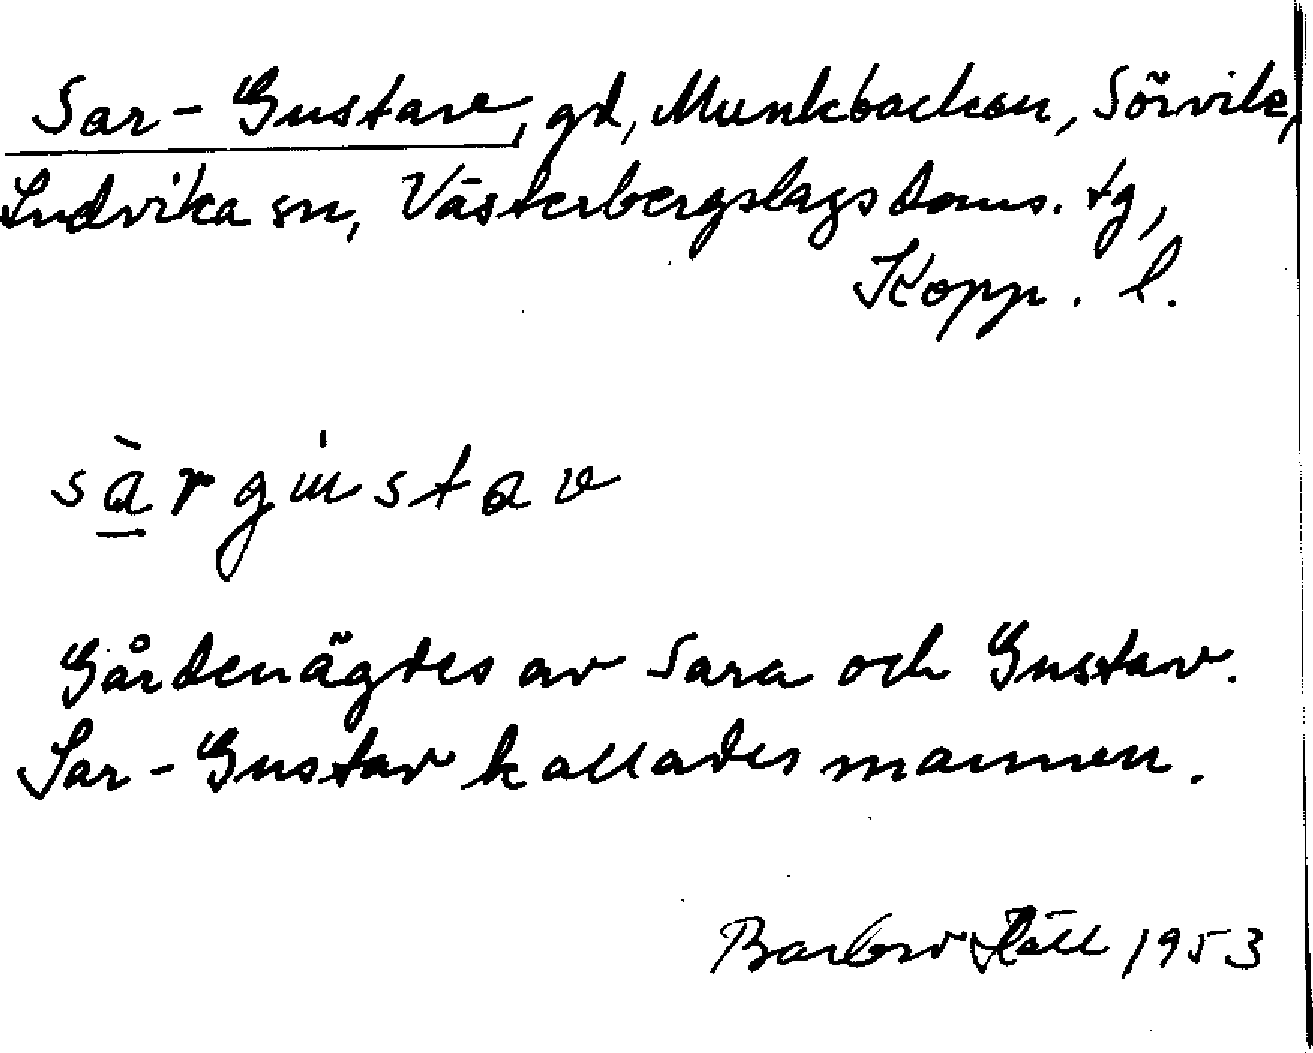 Sar-Gustave, gd, Munkbacken, Sörvik,
Ludvika sn, Västerbergslags doms. tg,
Kopp. l.
sàrgustav
Gården ägdes av Sara och Gustav.
Sar-Gustav kallades mannen.
Barbro 1953